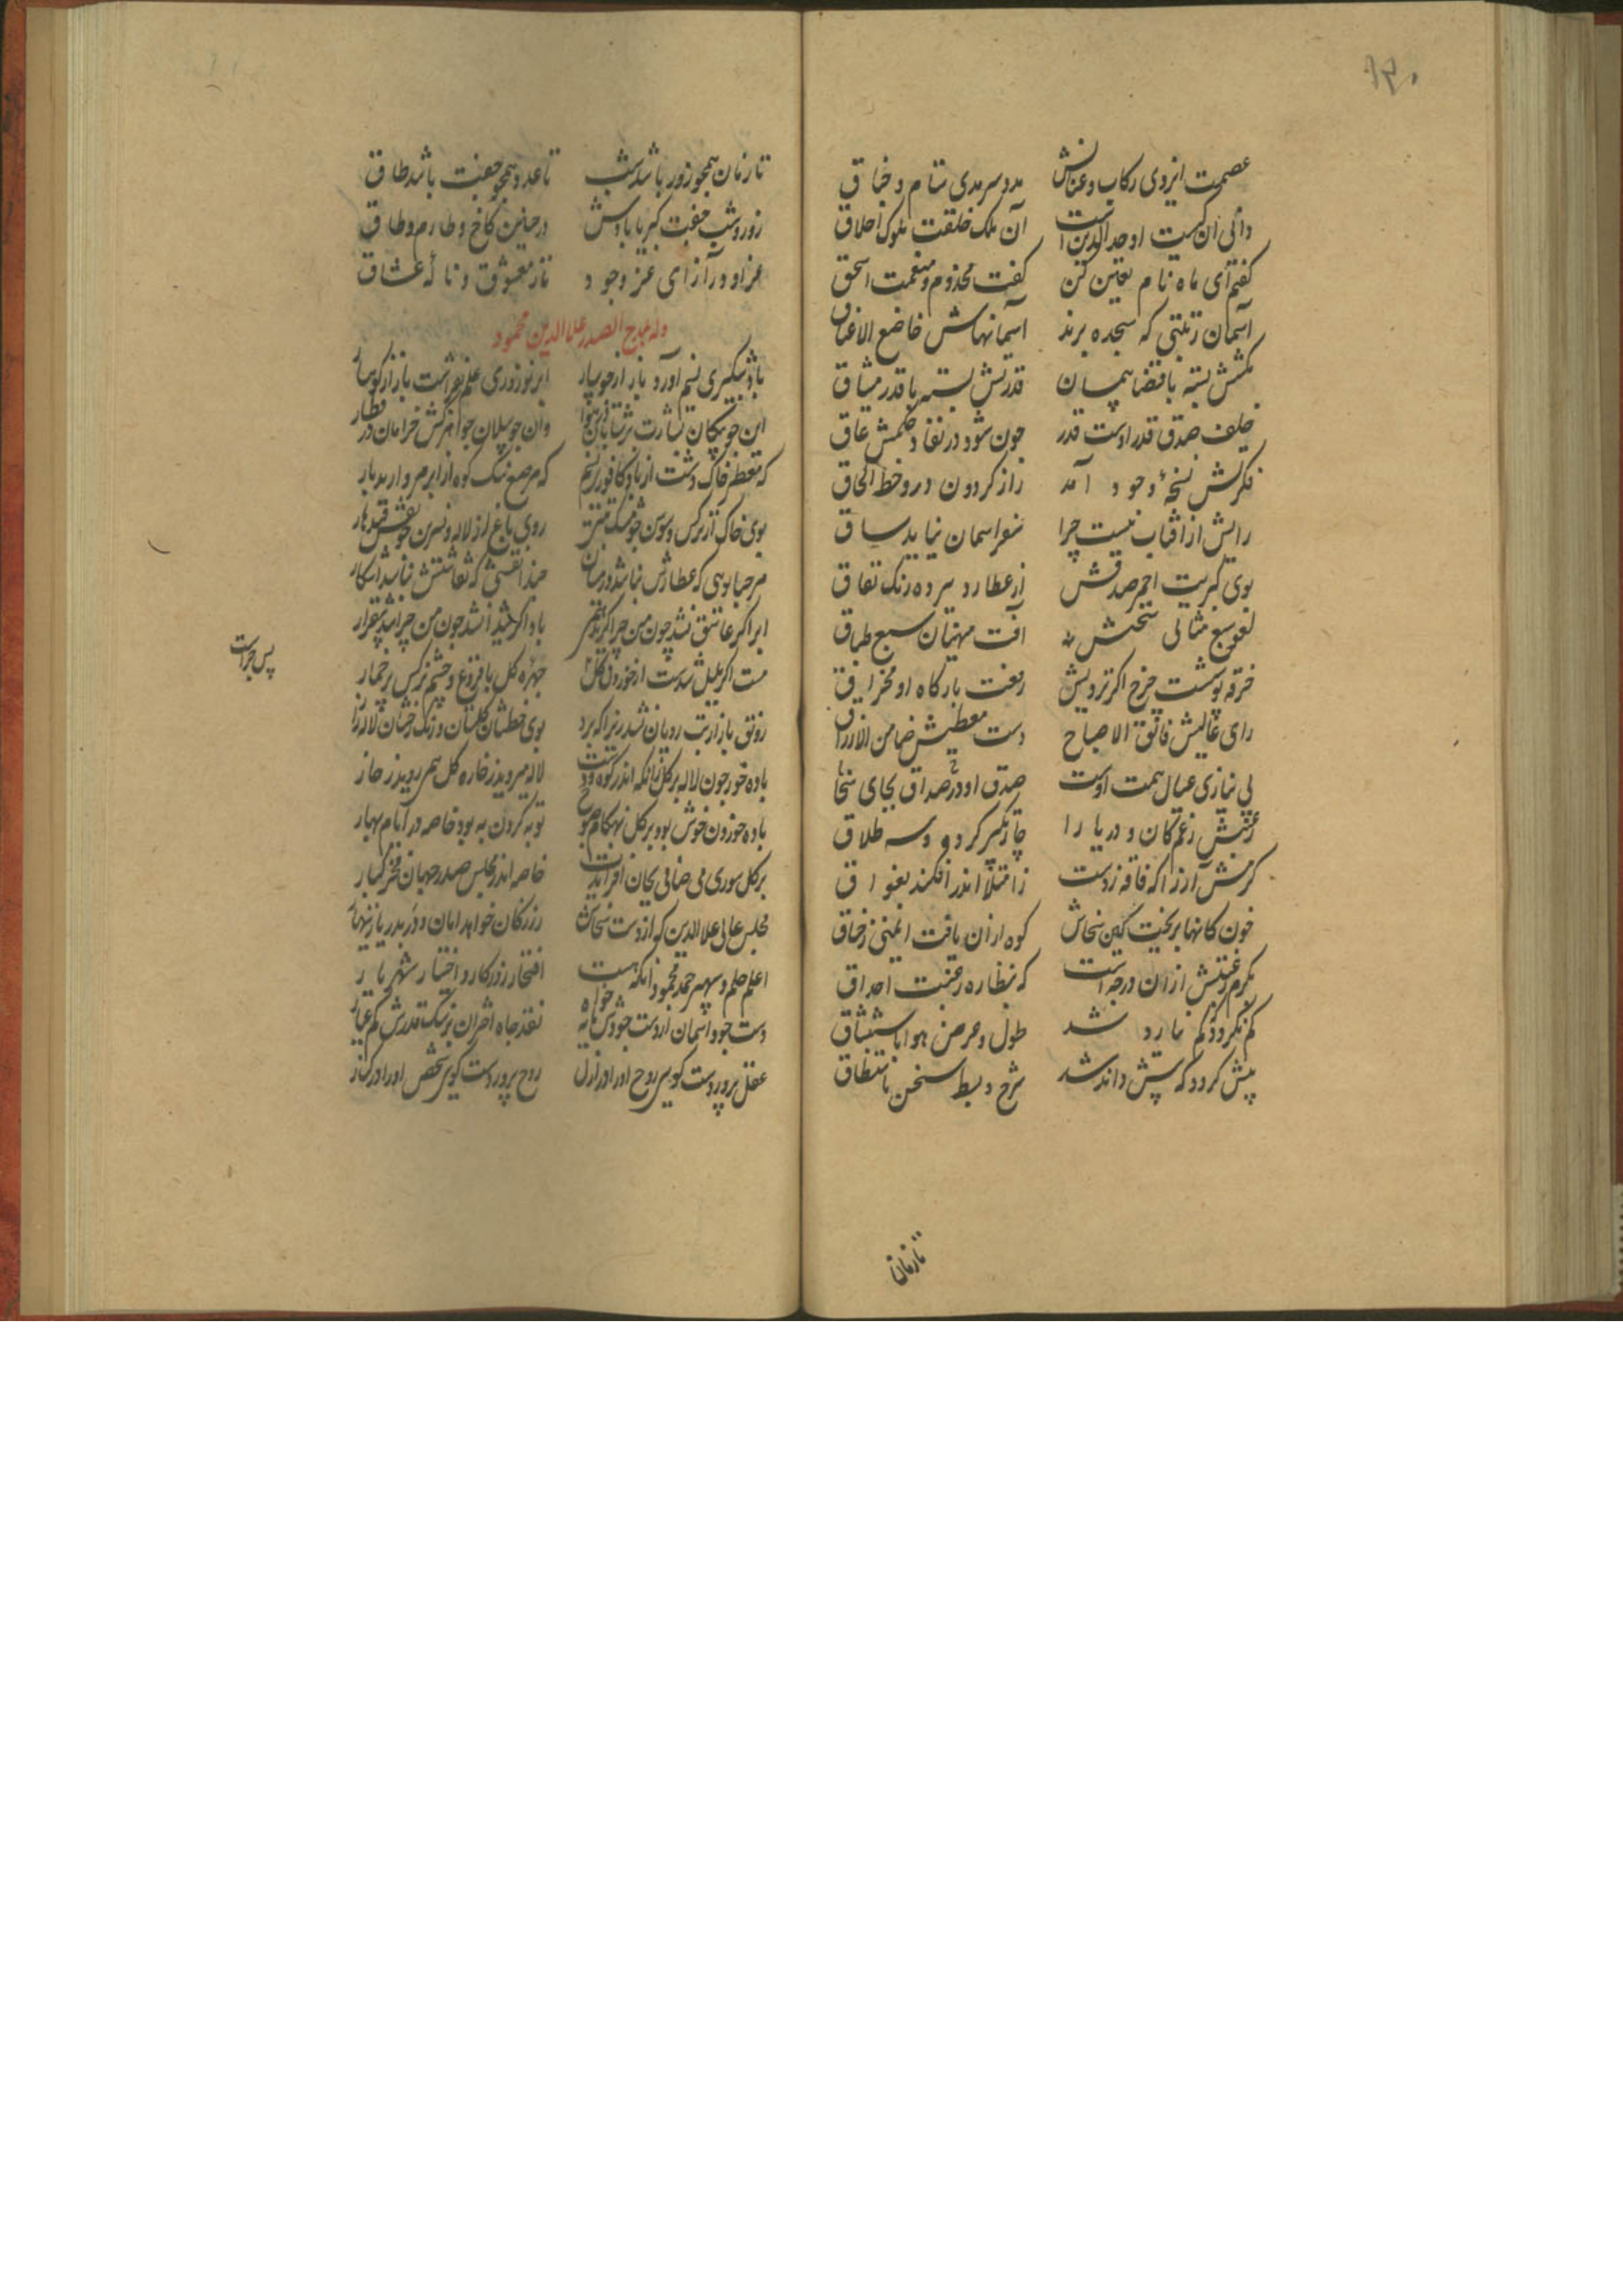 عصمت ایزدی رکاب و عنانش مدد سرمدی ستام و جناق
دانی آن کیست اوحدالدین است آن ملک خلقت ملوک اخلاق
گفتم ای ماه نام تعیین کن گفت مخدوم و منعمت اسحق
آسمان رتبتی که سجده برند آسمانهاش خاضع الاعناق
حکمش بسته با قضا پیمان قدرتش بسته با قدر میثاق
خلف صدق قدر اوست قدر چون شود در نفاد حکمش عاق
فکرتش نسخهٔ وجود آمد راز گردون درو خط الحاق
رایش از آفتاب نیست چرا سفر آسمان نیاید ساق
بوی کبریت احمر صدقش از عطارد ببرده رنگ نفاق
لغو سبع مثانی سخنش به آفت مهتران سبع طباق
خرقه پوشست چرخ اگر نه ردیش رفعت بارگاه او مخراق
رای عالیش فالق الاصباح دست معطیش ضامن الارزاق
بی نیازی عیال همت اوست صدق او در صداق بجای سخا
رغبتش زعم کان و دریا را چار تکبیر کرد و سه طلاق
کرمش آرزا که فاقه زدست ز امتلا اندر افکند بفواق
خون کانها بریخت کین سخاش کوه ازان یافت ایمنی ز خناق
بکرم رغبتش ازان درجه است که نظاره رغبت احداق
کم نگردد کم نارد شد طول و عرض هوا باستنشاق
بیش گردد که بیش داند شد شرح و بسط سخن باستنطاق
تا زمان
تا زمان همچو روز باشد شب تا عدد همچو جفت باشد طاق
روز و شب جفت کبریا بادش در چنین کاخ و طارم و طاق
عز او در آرزای عز وجود ناز معشوق و نالهٔ عشاق
وله یمدح الصدر علاءالدین محمود
باد شبگیری نسیم آورد باز از جویبار ابر نوروزی علم بفراشت باز از کوهسار
این چو پیکان بشارت بر شتابان در هوا وان چو پیلان جواهرکش خرامان در قطار
که معطر خاک دشت از باد کافوری نسیم که مرصع سنگ کوه از ابر مروارید بار
بوی خاک از نرگس و سوسن چو مشک تبتی روی باغ از لاله و نسرین چو نقش قندهار
مرحبا بویی که عطارش نباشد در میان حبذا نقشی که نقاشش نباشد آشکار
ابر اگر عاشق نشد چون من چرا گرید همی باد اگر شیدا نشد چون من چرا شد بیقرار
مست اگر بلبل شدست از خوردن مل چهرهٔ گل با فروغ و چشم نرگس پر خمار
رونق بازار بت رویان شد زیرا که برد بوی خطشان گلستان و رنگ رخشان لاله زار
باده خور چون لاله بر گل زانکه اندر کوه و دشت لاله میروید ز خاره گل همی روید ز خار
باده خوردن خوش بود بر گل بهنگام صبوح توبه کردن به بود خاصه در ایام بهار
بر گل سوری می صافی بجان افزایدت خاصه اندر مجلس صدر جهان فخر کبار
مجلس عالی علاالدین که از دست سخاش زر ز کان خواهد امان و در بدریا زینهار
اعلم حلم و سپهر حمد محمود آنکه هست افتخار روزگار و اختیار شهریار
دست جود آسمان از دست جودش مایه خواه نقد جاه اختران بر سنگ قدرش کم عیار
عقل پروردست گویی روح او را در ازل روح پروردست گویی شخص او را در کنار
پس چراست